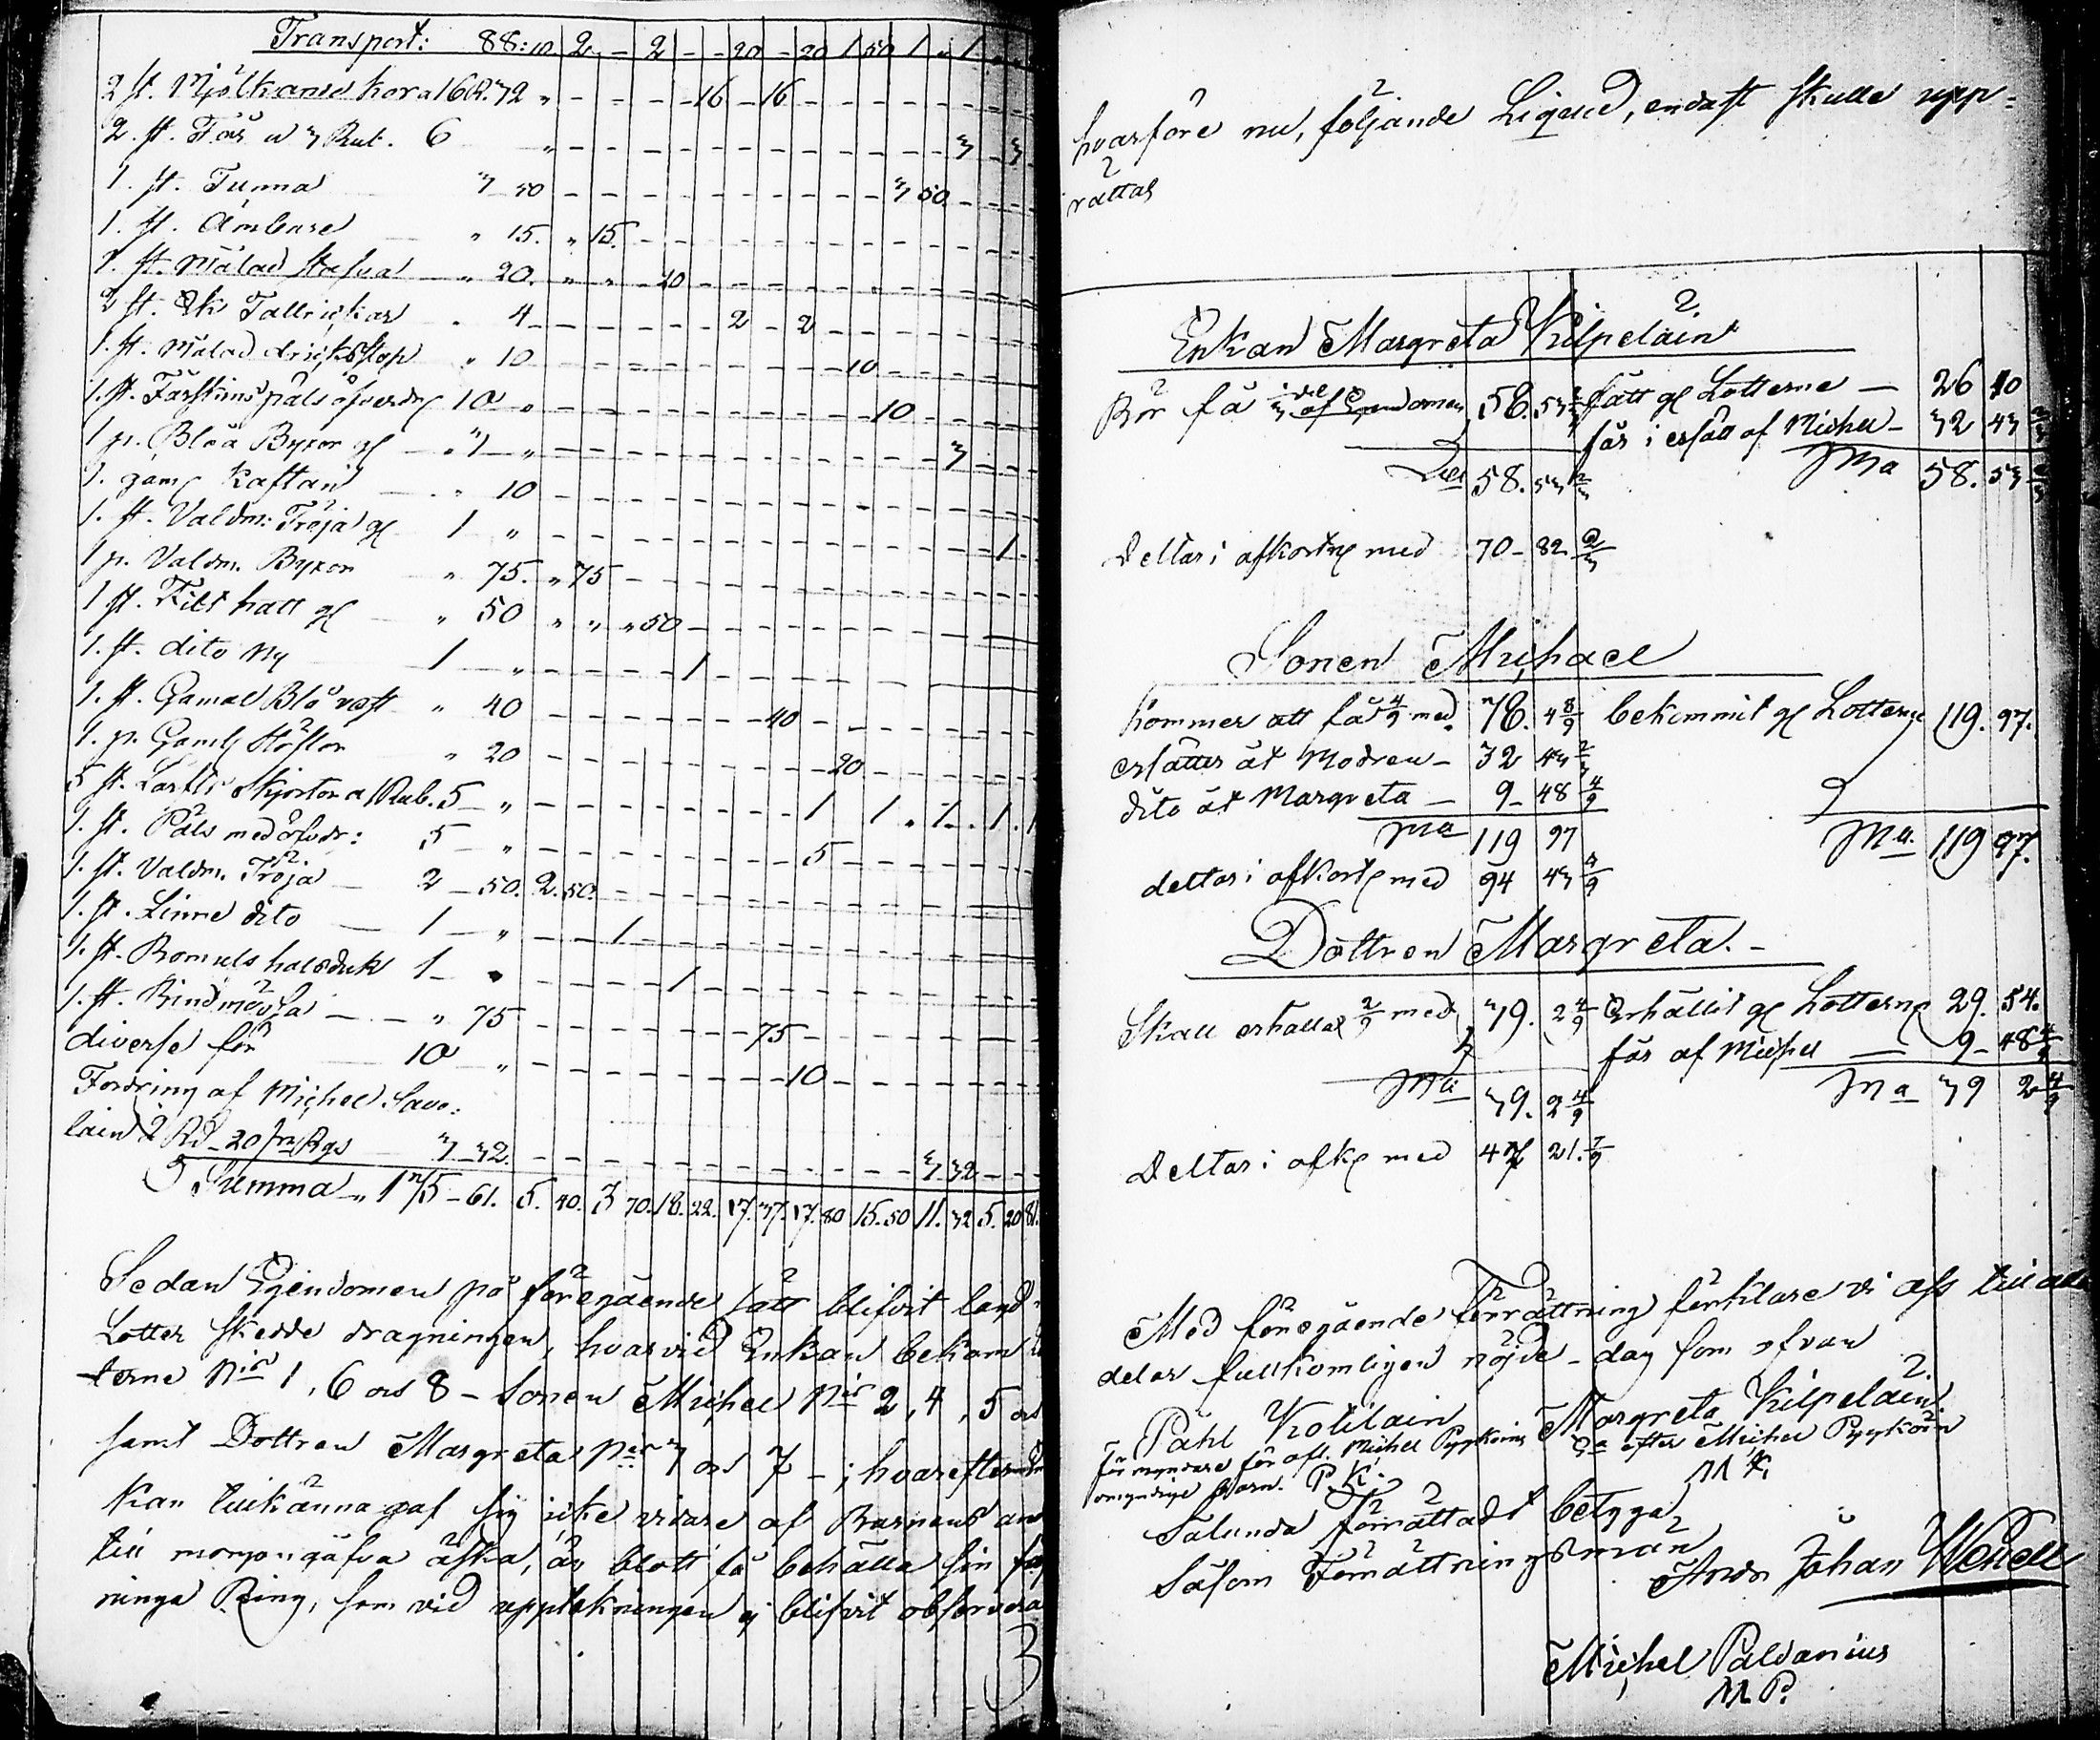 Transport: 88:10. 2 - 2 - - 20 - 20 1 50 1 „ 1
2 st. Mjölkande Kor a 16 R. 32 „ - - - - 16 - 16 - - - - - -
2. st. Får a 3 Rub. 6 „ - - - - - - - - - - 3 3
1. st. Tunna 3 50 - - - - - - - - - 3 50 - -
1. st. Ämbare „ 15. „ 15. - - - - - - - -
1. st. Målad stäfva „ 20. „ „ 20 - - - - - - -
2 st. Tallrickar „ 4 - - - - - 2 - 2 - - - - -
1. st. Målad dricksstop „ 10 - - - - - - - 10 - - - -
1. st. Fårskins päls 10 „ - - - - - - - - 10 - - -
1 p. Blåa Byxor gl 3 „ - - - - - - - - - 3 - -
1. gaml Kaftan „ 10 - - - - - - - - - -
1. st. Valdm: Tröja gl 1 „ - - - - - - - - - - 1
1 p. Valdm. Byxor „ 75. „ 75 - - - - - - -
1 st. Filt hatt gl „ 50 „ „ „ 50 - - - - - -
1. st. dito ny 1 „ - - - - 1 - - - - -
1. st. Gamal Blå väst „ 40 - - - - - - 40 - - - -
1. p. Gamla Stöflor „ 20 - - - - - - - 20 - - -
5 st. Skjortor a 1 Rub. 5 „ - - - - - - 1 1 „ 1 „ 1 . 1
1. st. Päls med öfvdr: 5 „ - - - - - - - 5 - - -
1. st. Valdm. Tröja 2 - 50. 2. 50. - - - - - -
1. st. Linne dito 1 „ - - 1 - - - - - -
1. st. Bomuls halsduk 1 - - - - - 1 - - - -
1. st. Bindmössa „ 75 - - - - - - 75 - - - -
diverse för 10 „ - - - - - - - 10 - - - -
Fordring af Michel Savo:
lain 2 Rd 20 Rgs 3 32. - - - - - - - - - 3 32 - -
Summa „ 175 - 61. 5. 40. 3 70. 18. 22. 17. 37. 17. 80 15. 50 11. 32 5. 20 81.
Sedan Egendomen på föregående sätt blifvit lagd i
Lotter skedde dragningen, hvarvid Enkan bekom
terne No 1, 6 och 8 - Sonen Michel No 2, 4, 5 och
samt Dottren Margreta No 3 och 7 - ; hvarefter
kan tillkännagaf sig icke vidare af Barnens
till morgongåfva äska, än blott få behålla sin
ringa Ring, som vid uppteckningen ej blifvit observera
3
hvarföre nu, följande Liqvid, endast skulle upp-
rättas
Enkan Margreta Kilpeläin
Bör få 1/3 del af Egendomen 58. 53 2/3 fått gl Lotterne - 26 10
får i ersätt af Michel - 32 43 2/3
58. 53 2/3 Ma 58. 53 2/3
Deltar i afkortng med 70 - 82 2/3
Sonen Michael
Kommer att få 4/9 med 78. 4 8/9 bekommit gl Lotterne 119. 97.
ersätter åt Modren - 32 43 2/3
dito åt Margreta - 9 - 48 4/9
Ma 119 97 Ma. 119 97.
deltar i afkortg med 94 43 4/9
Dottren Margreta. -
Skall erhålla 2/9 med 39. 2 4/9 Erhållit gl Lotterne 29. 54.
får af Michel - 9 - 48 4/9
Ma 39. 2 4/9 Ma 39 2 4/9
Deltar i afkg med 47 21. 7/9
Med föregående förrättning förklare vi oss till alla
delar fullkomligen nöjde - dag som ofvan
Påhl Kolilain Margreta Kilpeläin
förmyndare för afl. Michel Pyykönens Ea efter Michel Pyykön
omyndige barn. P. K. M K.
Sålunda förrättadt betyga
Såsom Förrättningsmän Johan Wenell
Michel Paldanius
M P.